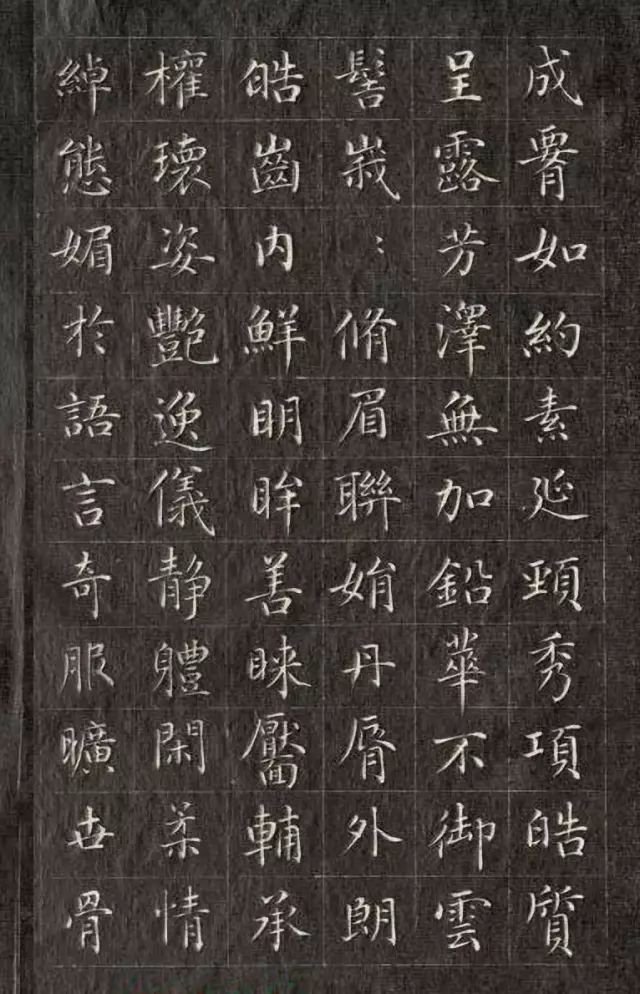 成腰如約素延頸秀項皓質
呈露芳澤無加鉛華不御雲
髻峩〻脩眉聯娟丹脣外朗
皓齒內鮮明眸善睞靨輔承
權瓌姿艷逸儀静軆閑柔情
綽態媚於語言奇服曠世骨